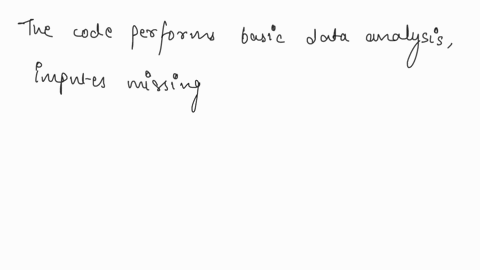 The code performs basic data analysis,
imputes missing